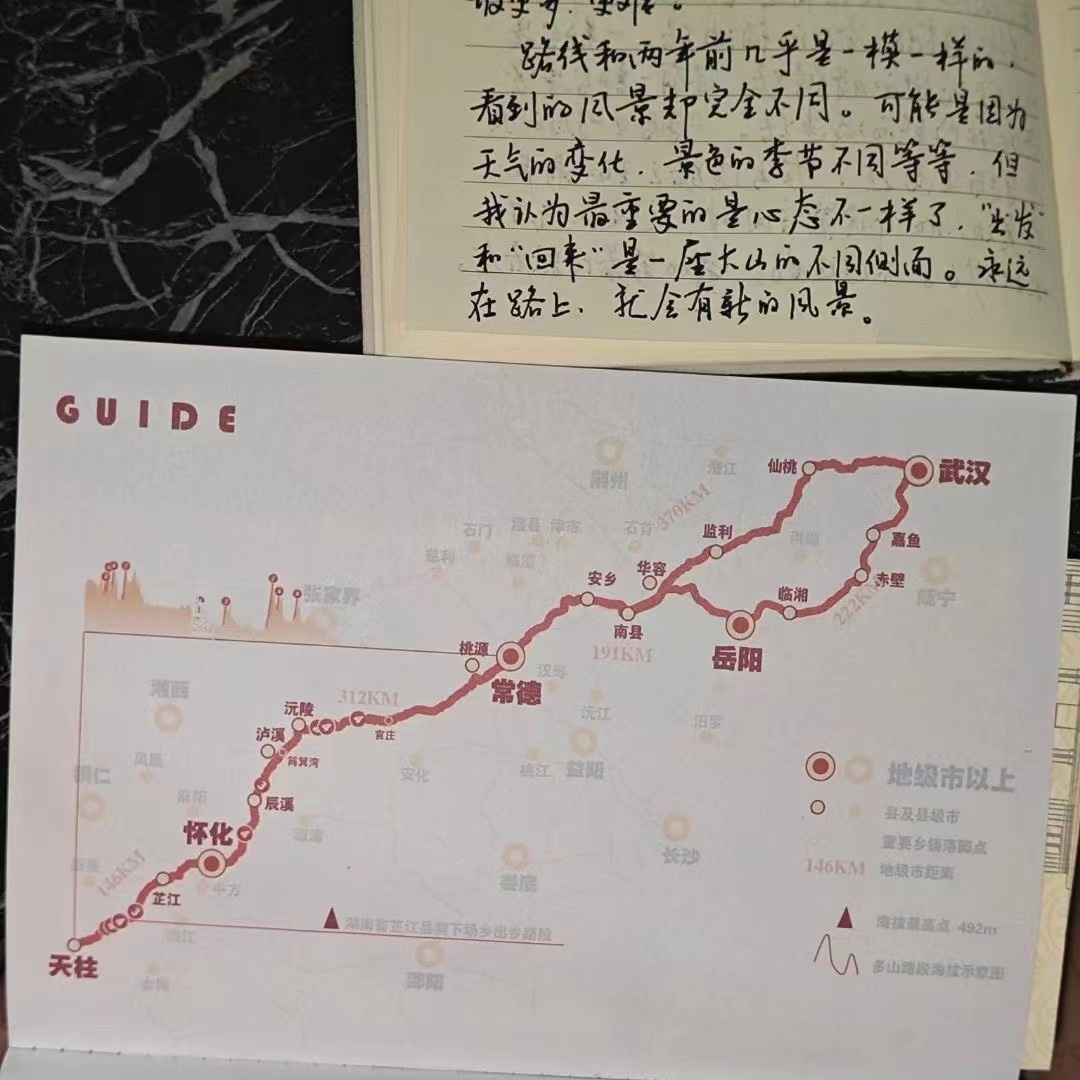 路线和两年前几乎是一模一样的,
看到的风景却完全不同。可能是因为
天气的变化,景色的季节不同等等,但
我认为最重要的是心态不一样了,"出发"
和"回来"是一座大山的不同侧面。永远
在路上,就会有新的风景。
GUIDE
武汉
仙桃
荆州
潜江
370KM
监利
嘉鱼
洪湖
石首
津市
澧县
石门
临澧
慈利
华容
安乡
南县
赤壁
咸宁
临湘
222KM
岳阳
191KM
张家界
桃源
常德
汉寿
沅江
汨罗
益阳
桃江
安化
312KM
官庄
沅陵
泸溪
筲箕湾
湘西
凤凰
铜仁
麻阳
辰溪
溆浦
怀化
中方
146KM
芷江
洪江
天柱
会同
邵阳
娄底
长沙
湖南省芷江县
下场乡出乡路段
地级市以上
县及县级市
重要乡镇落脚点
146KM 地级市距离
海拔最高点 492m
多山路段海拔示意图